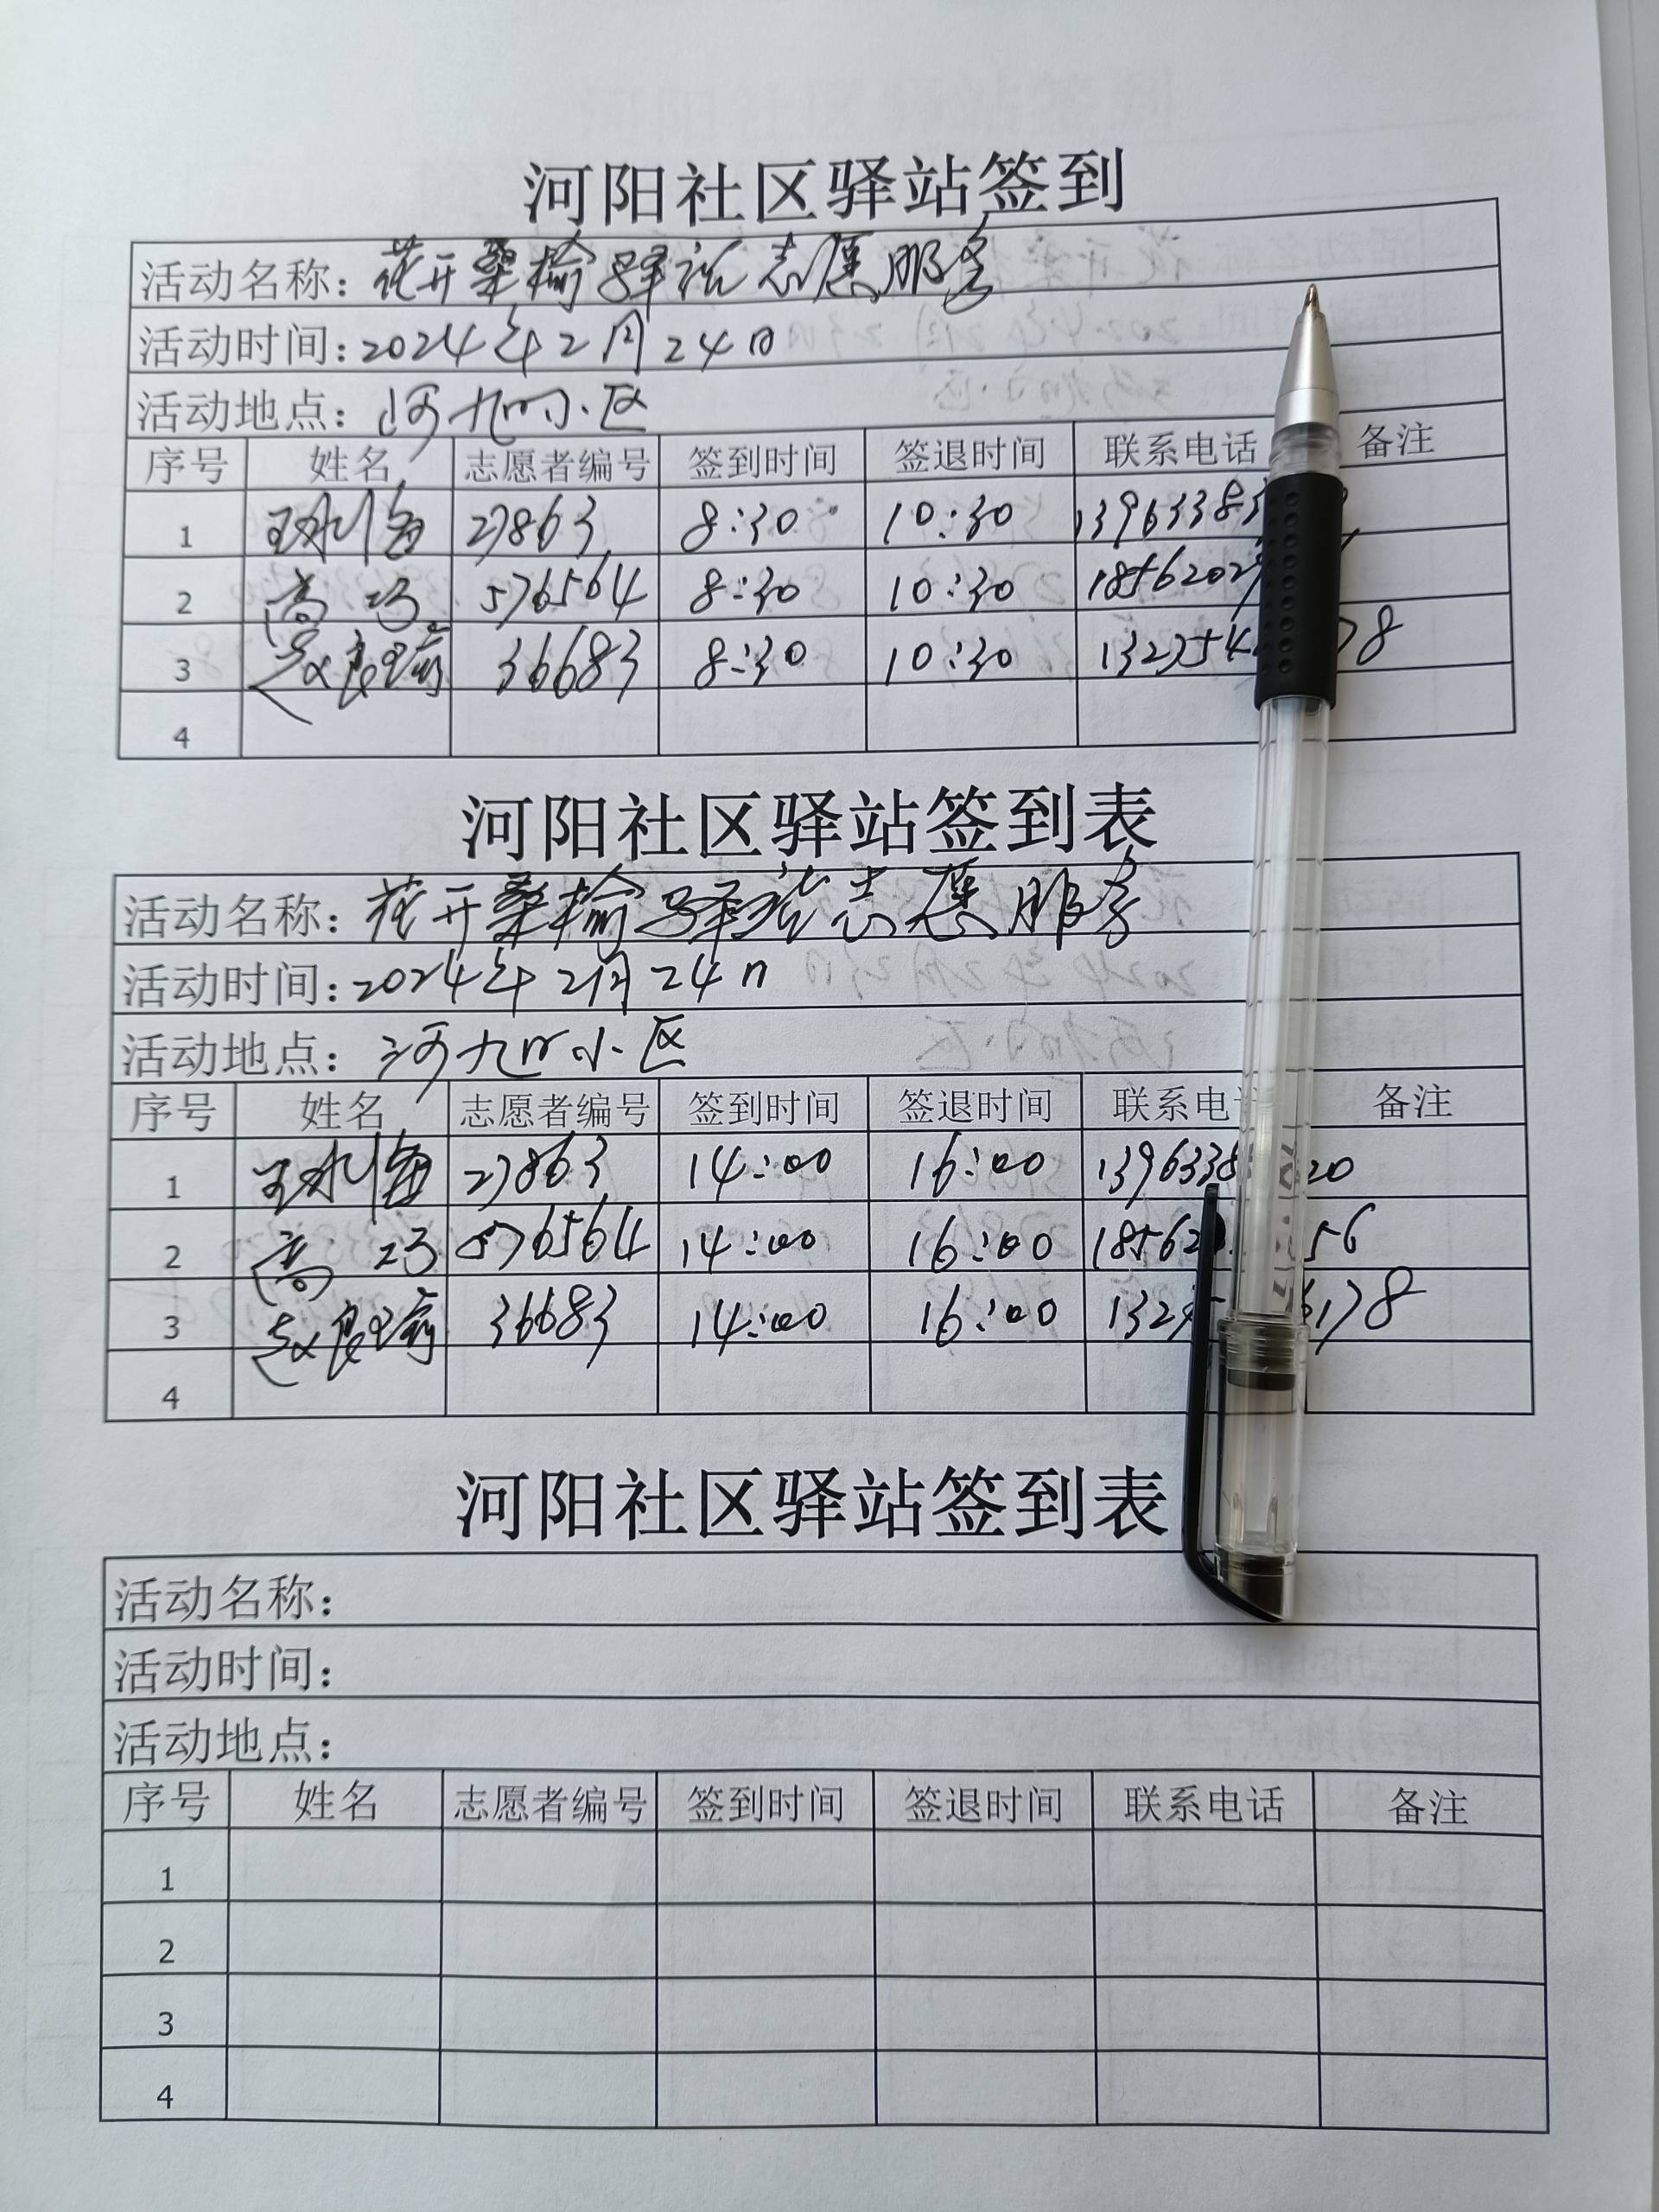 河阳社区驿站签到
活动名称：花开桑榆驿站志愿服务
活动时间：2024年2月24日
活动地点：河九四小区
序号 姓名 志愿者编号 签到时间 签退时间 联系电话 备注
1 27863 8:30 10:30 13963383
2 高巧 576564 8:30 10:30 18562029
3 赵良瑜 36683 8:30 10:30 132754 78
4
河阳社区驿站签到表
活动名称：花开桑榆驿站志愿服务
活动时间：2024年2月24日
活动地点：河九四小区
序号 姓名 志愿者编号 签到时间 签退时间 联系电 备注
1 27863 14:00 16:00 1396338 20
2 高巧 576564 14:00 16:00 18562 56
3 赵良瑜 36683 14:00 16:00 1327 178
4
河阳社区驿站签到表
活动名称：
活动时间：
活动地点：
序号 姓名 志愿者编号 签到时间 签退时间 联系电话 备注
1
2
3
4